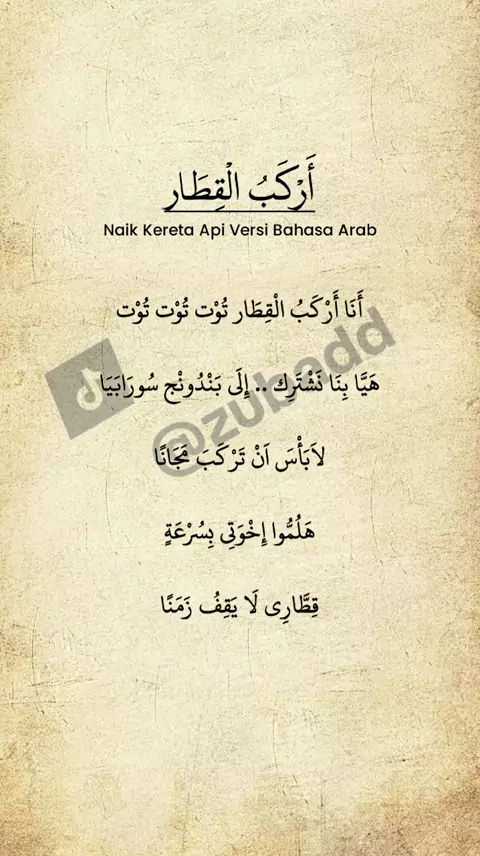 أَرْكَبُ الْقِطَار
Naik Kereta Api Versi Bahasa Arab
أَنَا أَرْكَبُ الْقِطَار تُوْت تُوْت تُوْت
هَيَّا بِنَا نَشْتَرِك .. إِلَى بَنْدُونْج سُورَابَيَا
@zubadd
لاَبَأْسَ اَنْ تَرْكَبَ مَجَانًا
هَلُمُّوا إِخْوَتِي بِسُرْعَةٍ
قِطَّارِى لَا يَقِفُ زَمَنًا